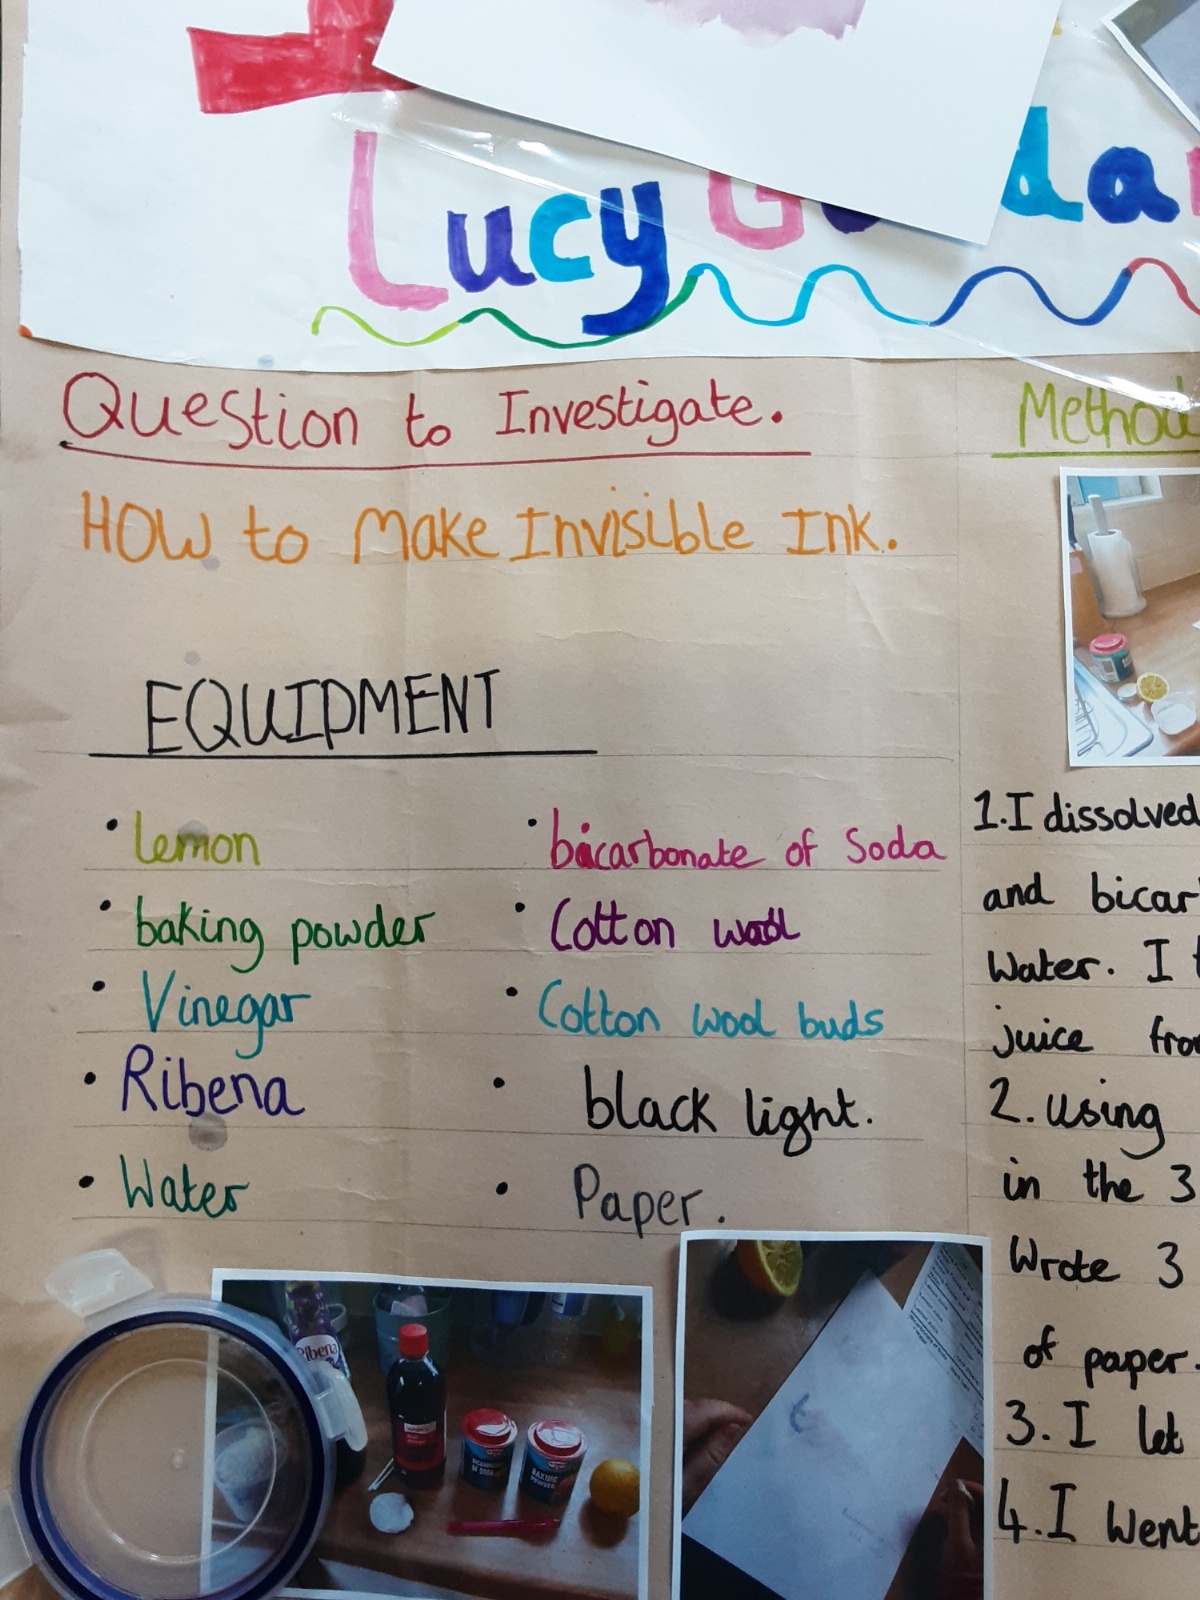 Lucy
Question to Investigate.
How to Make Invisible Ink.
EQUIPMENT
• lemon
• baking powder
• Vinegar
• Ribena
• Water
• bicarbonate of Soda
• Cotton wool
• Cotton wool buds
• black light.
• Paper.
Ribena
BICARBONATE OF SODA
BAKING POWDER
Method
1. I dissolved
and bicar
Water. I t
juice from
2. using
in the 3
Wrote 3
of paper.
3. I let
4. I Went